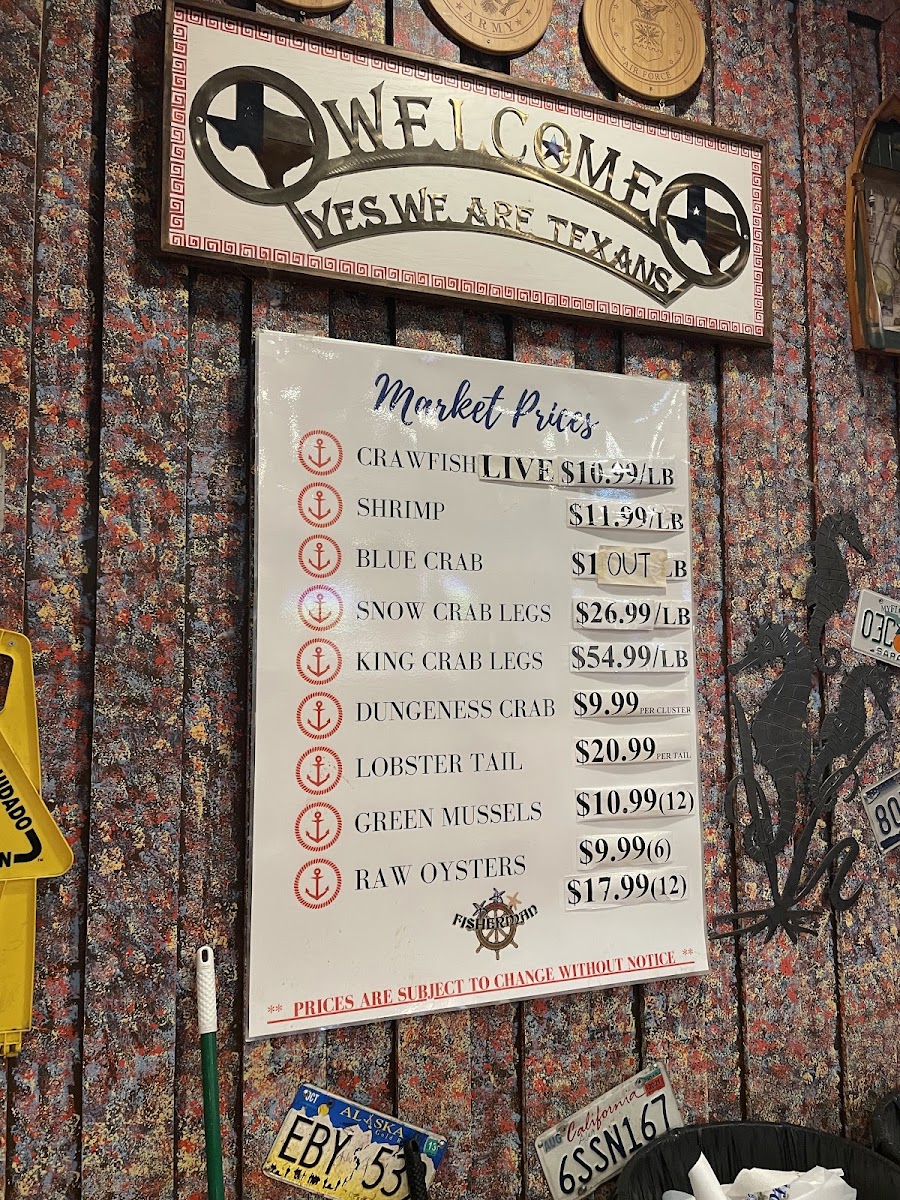 ARMY
AIR FORCE
WELCOME
YES WE ARE TEXANS
Market Prices
CRAWFISH LIVE $10.99/LB
SHRIMP $11.99/LB
BLUE CRAB $1 OUT LB
SNOW CRAB LEGS $26.99/LB
KING CRAB LEGS $54.99/LB
DUNGENESS CRAB $9.99 PER CLUSTER
LOBSTER TAIL $20.99 PER TAIL
GREEN MUSSELS $10.99(12)
RAW OYSTERS $9.99(6)
$17.99(12)
FISHERMAN
** PRICES ARE SUBJECT TO CHANGE WITHOUT NOTICE **
UIDADO
N
03C
80
OCT ALASKA 13
EBY 53
AUG California
6SSN167